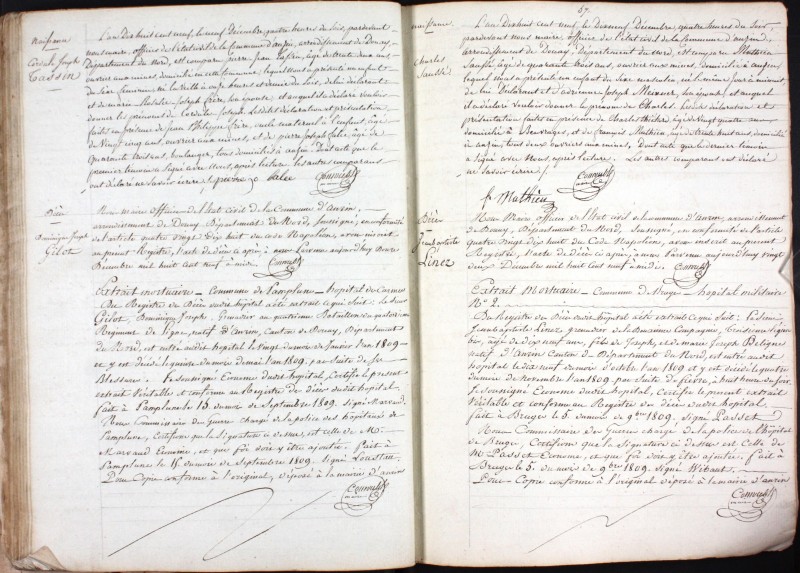 Naissance
Cordule Joseph
Cassin
L'an Dix huit cent neuf, le neuf Décembre, quatre heures du soir, pardevant
nous maire, officier de l'état civil de la Commune d'anzin, arrondissement de Douay,
Département du Nord, est comparu pierre Jean
ouvrier aux mines, domicilié en cette commune, lequel nous a présenté un enfant
du Sexe féminin, né la veille à onze heures et demie du Soir, de lui déclarant
et de marie Joseph son épouse, et auquel il a déclaré vouloir
donner les prénoms de Cordule Joseph. Lesdites déclaration et présentation
faites en présence de jean Philippe oncle maternel à l'enfant, âgé
de Vingt cinq ans, ouvrier aux mines, et de pierre Joseph Salez âgé de
Quarante trois ans, boulanger, tous domiciliés à anzin. Dont acte que le
premier témoin a Signé avec Nous, après lecture les autres comparans
ont déclaré ne Savoir écrire
Décès
Dominique Joseph
Gilot
Nous Maire officier de l'Etat civil de la Commune d'anzin,
arrondissement de Douay, Département du Nord, Soussigné, en conformité
de l'article quatre vingt dix huit du code Napoléon, avons inscrit
au present Registre, l'acte de décès ci après; à anzin Le aujourdhuy
Décembre mil huit cent neuf à midi.
Extrait mortuaire - Commune de Pamplune - hopital de Carmes
Du Registre de Décès dudit hôpital a été extrait ce qui Suit: Le Sieur
Gilot, Dominique Joseph, Grenadier au quatrième Bataillon du
Régiment de ligne, natif d'Anzin, Canton de Douay, Département
du Nord, est entré audit hopital le vingt du mois de Janvier l'an 1809
et y est décédé le du mois de mai l'an 1809, par Suite de Ses
Blessures. Je soussigné Econome dudit hopital, Certifie le present
extrait Véritable et conforme au Registre de décès dudit hopital.
fait à Pamplune le 15 du mois de Septembre 1809. Signé Marraud
Nous Commissaire des Guerre chargé de la police des hopitaux de
Pamplune, Certifions que la Signature ci dessus, est celle de Mr.
Marraud Econome, et que foi doit y être ajoutée. fait à
Pamplune le 15 du mois de Septembre 1809. Signé
Pour Copie conforme à l'original, déposé à la mairie d'anzin
57.
naissance
Charles
Saussé
L'an Dix huit cent neuf, le Dix neuf Décembre, quatre heures du Soir
pardevant nous maire, officier de l'état civil de la commune d'anzin,
arrondissement de Douay, Département du Nord, est comparu Mathieu
Saussé, âgé de quarante trois ans, ouvrier aux mines, domicilié à anzin
lequel nous a présenté un enfant du Sexe masculin, né le même jour à minuit
de lui Déclarant et d'adrienne Joseph Meunier, Son épouse, et auquel
il a déclaré vouloir donner le prénom de Charles. Lesdites déclaration et
présentation faites en présence de Charles âgé de Vingt quatre
domicilié à et de françois Mathieu, âgé de trente huit ans, domicilié
à anzin, tous deux ouvriers aux mines, dont acte que le dernier témoin
a Signé avec Nous, après lecture. Les autres comparans ont déclaré
ne Savoir écrire
f. Mathieu
Décès
Jean baptiste
Linez
Nous Maire officier de l'Etat civil de la commune d'anzin, arrondissement
de Douay, Département du Nord, Soussigné, en conformité de l'article
quatre Vingt dix huit du Code Napoléon, avons inscrit au present
Registre, l'acte de décès ci après, à anzin Le aujourdhuy vingt
deux Décembre mil huit cent neuf à midi.
Extrait Mortuaire - Commune de Bruges - hopital militaire
N° 2.
Du Registre de Décès dudit hôpital a été extrait ce qui Suit: Le Sieur
Jean baptiste Linez grenadier de la Deuxième Compagnie,
âgé de dix neuf ans, fils de Joseph, et de marie Joseph
natif d'Anzin Canton d Département du Nord, est entré audit
hopital le dix neuf du mois d'octobre l'an 1809 et y est décédé le quatre
du mois de novembre l'an 1809 par Suite de fièvre, à huit heures du Soir.
Je soussigné Econome dudit hopital, Certifie le present extrait
Véritable et conforme au Registre de décès dudit hopital.
fait à Bruges le 5 du mois de 9bre 1809. Signé Passet
Nous Commissaire des Guerre chargé de la police de l'hôpital
de Bruges, Certifions que la Signature ci dessus est Celle de
Mr Passet Econome, et que foi doit y être ajoutée. fait à
Bruges le 5 du mois de 9bre 1809. Signé Wibaut
Pour Copie conforme à l'original déposé à la mairie d'anzin